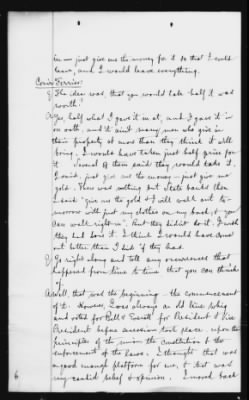 in — just give me the money for it so that I could
leave, and I would leave everything.
Com'r Ferriss:
Q The idea was that you would take half it was
worth?
A Yes, half what I gave it in at, and I gave it in
on oath, and it ain't many men who give in
their property at more than they think it will
bring. I would have taken just half price for
it. Several of them said they would take it.
I said, just give me the money — just give me
gold. There was nothing but State banks then
I said "give me the gold & I will walk out to-
morrow with just my clothes on my back, & you
can walk right in". But they didn't do it. I wish
they had done it. I think I would have come
out better than I did if they had.
Q Go right along and tell any occurrences that
happened from time to time that you can think
of.
A Well, that was the beginning — the commencement
of it. However, I was always an old line whig
and voted for Bell & Everett for President & Vice
President before secession took place upon the
principles of the union the constitution & the
enforcement of the laws. I thought that was
a good enough platform for me, & that was
my candid belief & opinion. I moved back
6